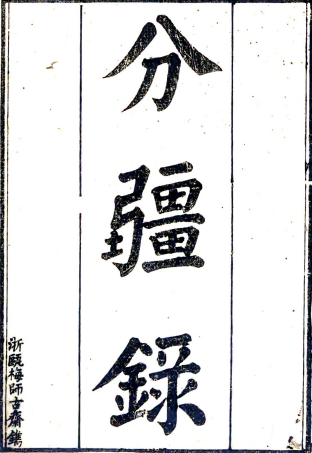 分疆錄
浙甌梅師古齋鐫